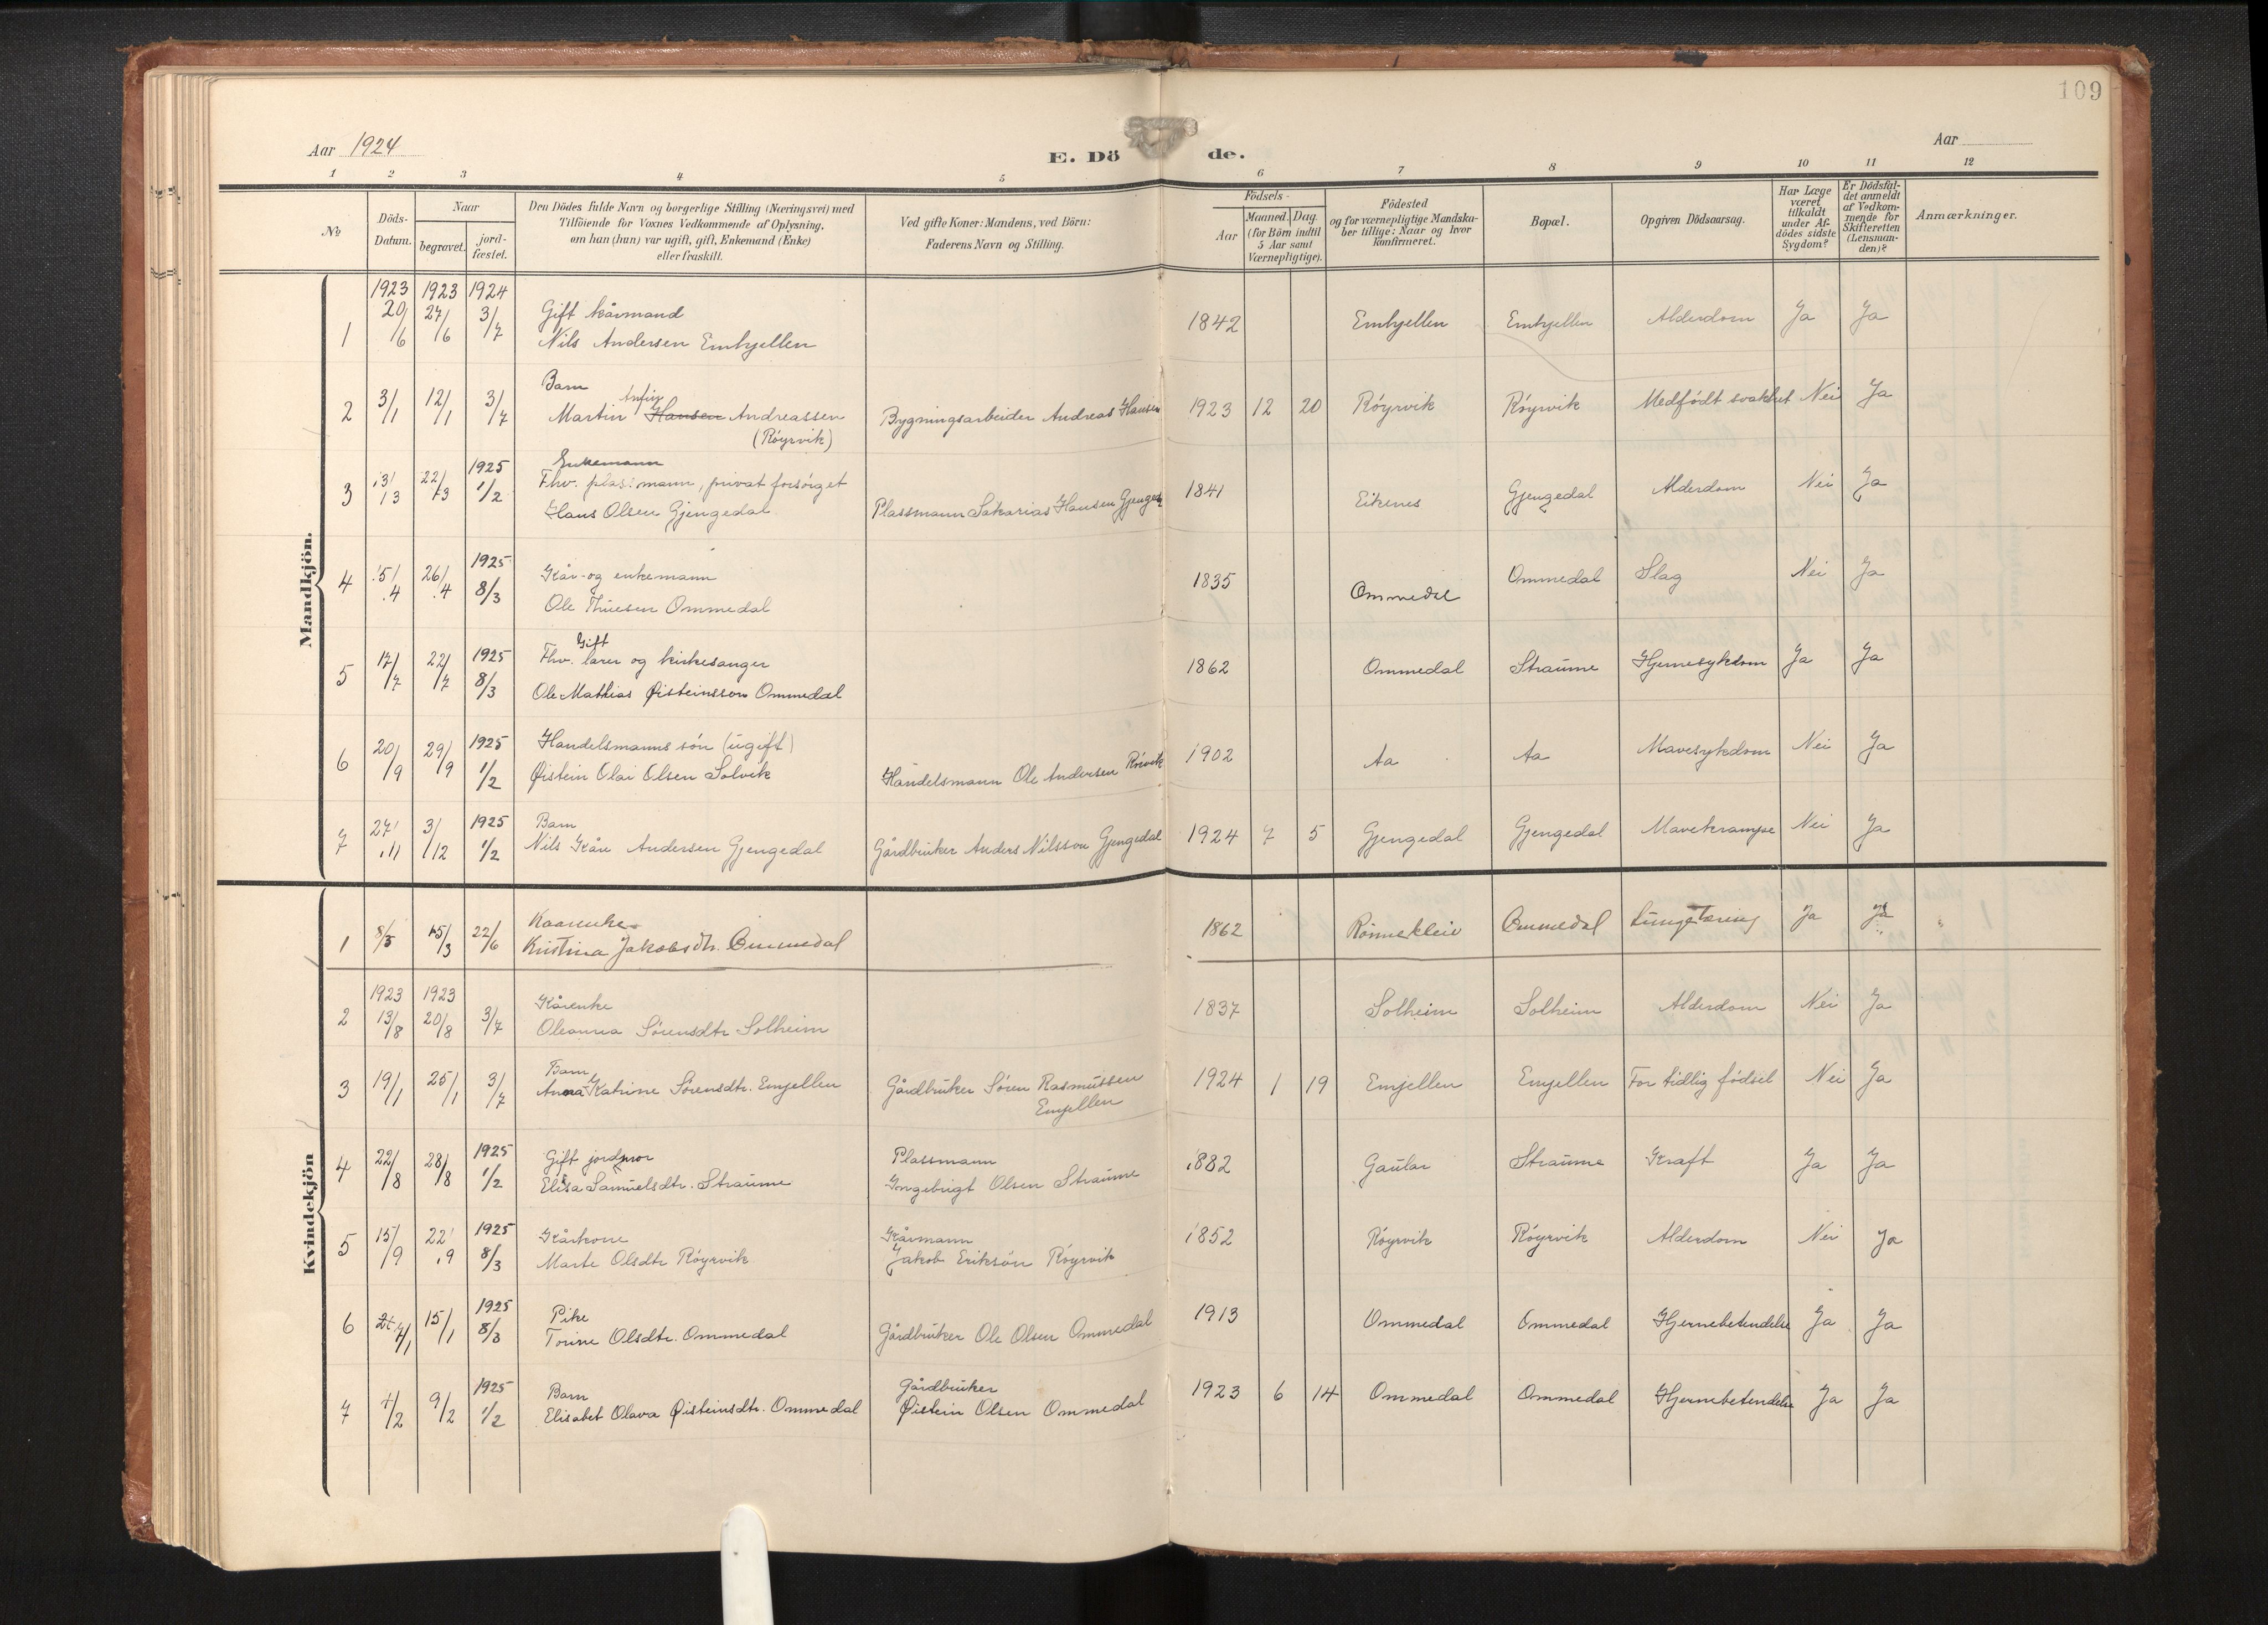 109
Aar 1924
E. Dö
de.
Aar
1 2 3 4 5 6 7 8 9 10 11 12
No
Döds-
Datum.
Naar
begravet.
jord-
fæstet.
Den Dödes fulde Navn og borgerlige Stilling (Næringsvei) med
Tilföiende for Voxnes Vedkommende af Oplysning,
om han (hun) var ugift, gift, Enkemand (Enke)
eller fraskilt.
Ved gifte Koner: Mandens, ved Börn:
Faderens Navn og Stilling.
Födsels-
Aar
Maaned. Dag.
(for Börn indtil
5 Aar samt
Værnepligtige).
Födested
og for værnepligtige Mandska-
ber tillige: Naar og hvor
konfirmeret.
Bopæl.
Opgiven Dödsaarsag.
Har Læge
været
tilkaldt
under Af-
dödes sidste
Sygdom?
Er Dödsfal-
det anmeldt
af Vedkom-
mende for
Skifteretten
(Lensman-
den)?
Anmærkninger.
Mandkjön.
1923 1923 1924
1 20/6 27/6 3/7 Gift kårmand
Nils Andersen Emhjellen 1842 Emhjellen Emhjellen Alderdom Ja Ja
Barn
Anfin
2 3/1 12/1 3/7 Martin Hansen Andreassen Bygningsarbeider Andreas Hansen 1923 12 20 Röyrvik Röyrvik Medfödt svakhet Nei Ja
(Röyrvik)
1925 Enkemann
Fhv. plassmann, privat forsörget
3 13/3 22/3 1/2 Hans Olsen Gjengedal Plassmann Sakarias Hansen 1841 Eikenes Gjengedal Alderdom Nei Ja
1925
Kår- og enkemann
4 15/4 26/4 8/3 Ole Thuesen Ommedal 1835 Ommedal Ommedal Slag Nei Ja
Gift
1925 Fhv. lærer og kirkesanger
5 17/7 22/7 8/3 Ole Mathias Øisteinsson Ommedal 1862 Ommedal Straume Hjernesykdom Ja Ja
1925 Handelsmanns sön (ugift)
6 20/9 29/9 1/2 Øistein Olai Olsen Solvik Handelsmann Ole Andersen 1902 Aa Aa Mavesykdom Nei Ja
1925 Barn
7 27/11 3/12 1/2 Nils Kåre Andersen Gjengedal Gårdbruker Anders Nilsson Gjengedal 1924 7 5 Gjengedal Gjengedal Mavekrampe Nei Ja
Kvindekjön
Kaarenke
1 8/3 15/3 22/6 Kristina Jakobsdtr. Ommedal 1862 Rönnekleiv Ommedal Lungetæring Ja Ja
1923 1923 Kårenke
2 13/8 20/8 3/7 Oleanna Sörensdtr Solheim 1837 Solheim Solheim Alderdom Nei Ja
Barn
3 19/1 25/1 3/7 Anna Katrine Sörensdtr. Emjellen Gårdbruker Sören Rasmussen 1924 1 19 Emjellen Emjellen For tidlig födsel Nei Ja
Emjellen
1925 Gift jordmor Plassmann
4 22/8 28/8 1/2 Elisa Samuelsdtr. Straume Ingebrigt Olsen Straume 1882 Gaular Straume Kræft Ja Ja
1925 Kårkone Kårmann
5 15/9 22/9 8/3 Marte Olsdtr Röyrvik Jakob Eriksön Röyrvik 1852 Röyrvik Röyrvik Alderdom Nei Ja
1925 Pike
6 4/1 15/1 8/3 Torine Olsdtr. Ommedal Gårdbruker Ole Olsen Ommedal 1913 Ommedal Ommedal Hjernebetendelse Ja Ja
1925 Barn Gårdbruker
7 4/2 9/2 1/2 Elisabet Olava Øisteinsdtr. Ommedal Øistein Olsen Ommedal 1923 6 14 Ommedal Ommedal Hjernebetendelse Ja Ja